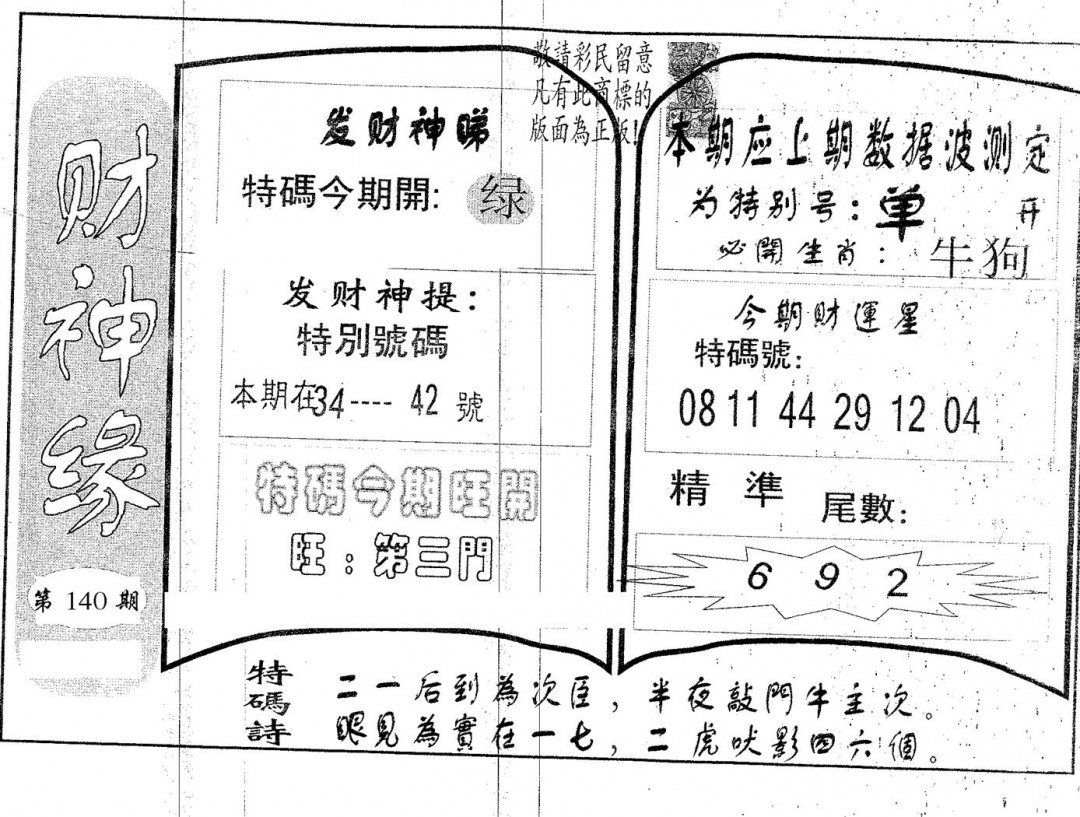 财神缘
第 140 期
敬請彩民留意
凡有此商標的
版面為正版!
发财神睇
特碼今期開: 绿
发财神提:
特別號碼
本期在34---- 42 號
特碼今期旺開
旺:第三門
本期应上期数据波测定
为特别号:单 开
必開生肖: 牛狗
今期财運星
特碼號:
08 11 44 29 12 04
精 準 尾數:
6 9 2
特碼詩
二一后到為次臣,半夜敲門牛主次。
眼見為實在一七,二虎吠影四六個。